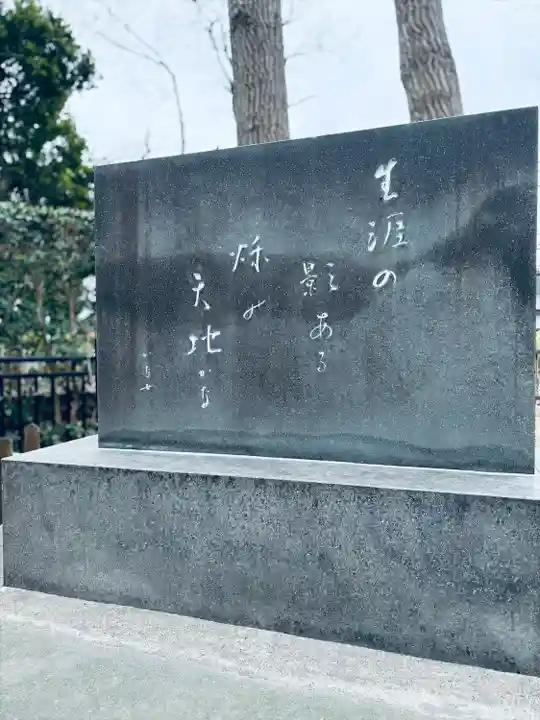 生涯の
影ある
秋の
天地かな
かな女